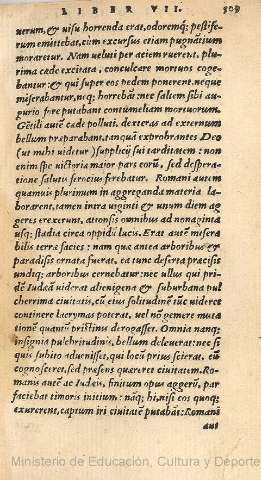 LIBER VII. 309
uerum, & uisu horrenda erat, odoremq; pestife-
rum emittebat, cum excursus etiam pugnātium
moraretur. Nam ueluti per aciem ruerent, plu-
rima cede excitata, conculcare mortuos coge-
bantur: & qui super eos pedem ponerent, neque
miserabantur, neq; horrebāt: nec saltem sibi au-
gurio fore putabant contumeliam mortuorum.
Gētili autē cæde polluti, dexteras ad externum
bellum præparabant, tanquā exprobrantes Deo
(ut mihi uidetur) supplicij sui tarditatem: non
enim spe uictoria maior pars eorū, sed despera-
tione salutis ferocius ferebatur. Romani autem
quamuis plurimum in aggreganda materia la-
borarent, tamen intra uiginti & unum diem ag
geres erexerunt, attonsis omnibus ad nonaginta
usq; stadia circa oppidū lucis. Erat autē misera
bilis terræ facies: nam quæ antea arboribus &
paradisis ornata fuerat, ea tunc deserta præcisis
undiq; arboribus cernebatur: nec ullus qui pri-
dē Iudæā uiderat alienigena & suburbana pul
cherrima ciuitatis, cū eius solitudinē iūc uideret
continere lacrymas poterat, uel nō gemere muta
tionē quantū pristinis derogasset. Omnia nanq;
insignia pulchritudinis, bellum deleuerat: nec si
quis subito aduenisset, qui locū prius scierat, eū
cognosceret, sed præsens quæreret ciuitatem. Ro-
manis autē ac Iudæis, finitum opus aggerū, par
faciebat timoris initium: nāq; hi, nisi eos quoq;
exurerent, captum iri ciuitatē putabāt: Romani
aut
Ministerio de Educación, Cultura y Deporte